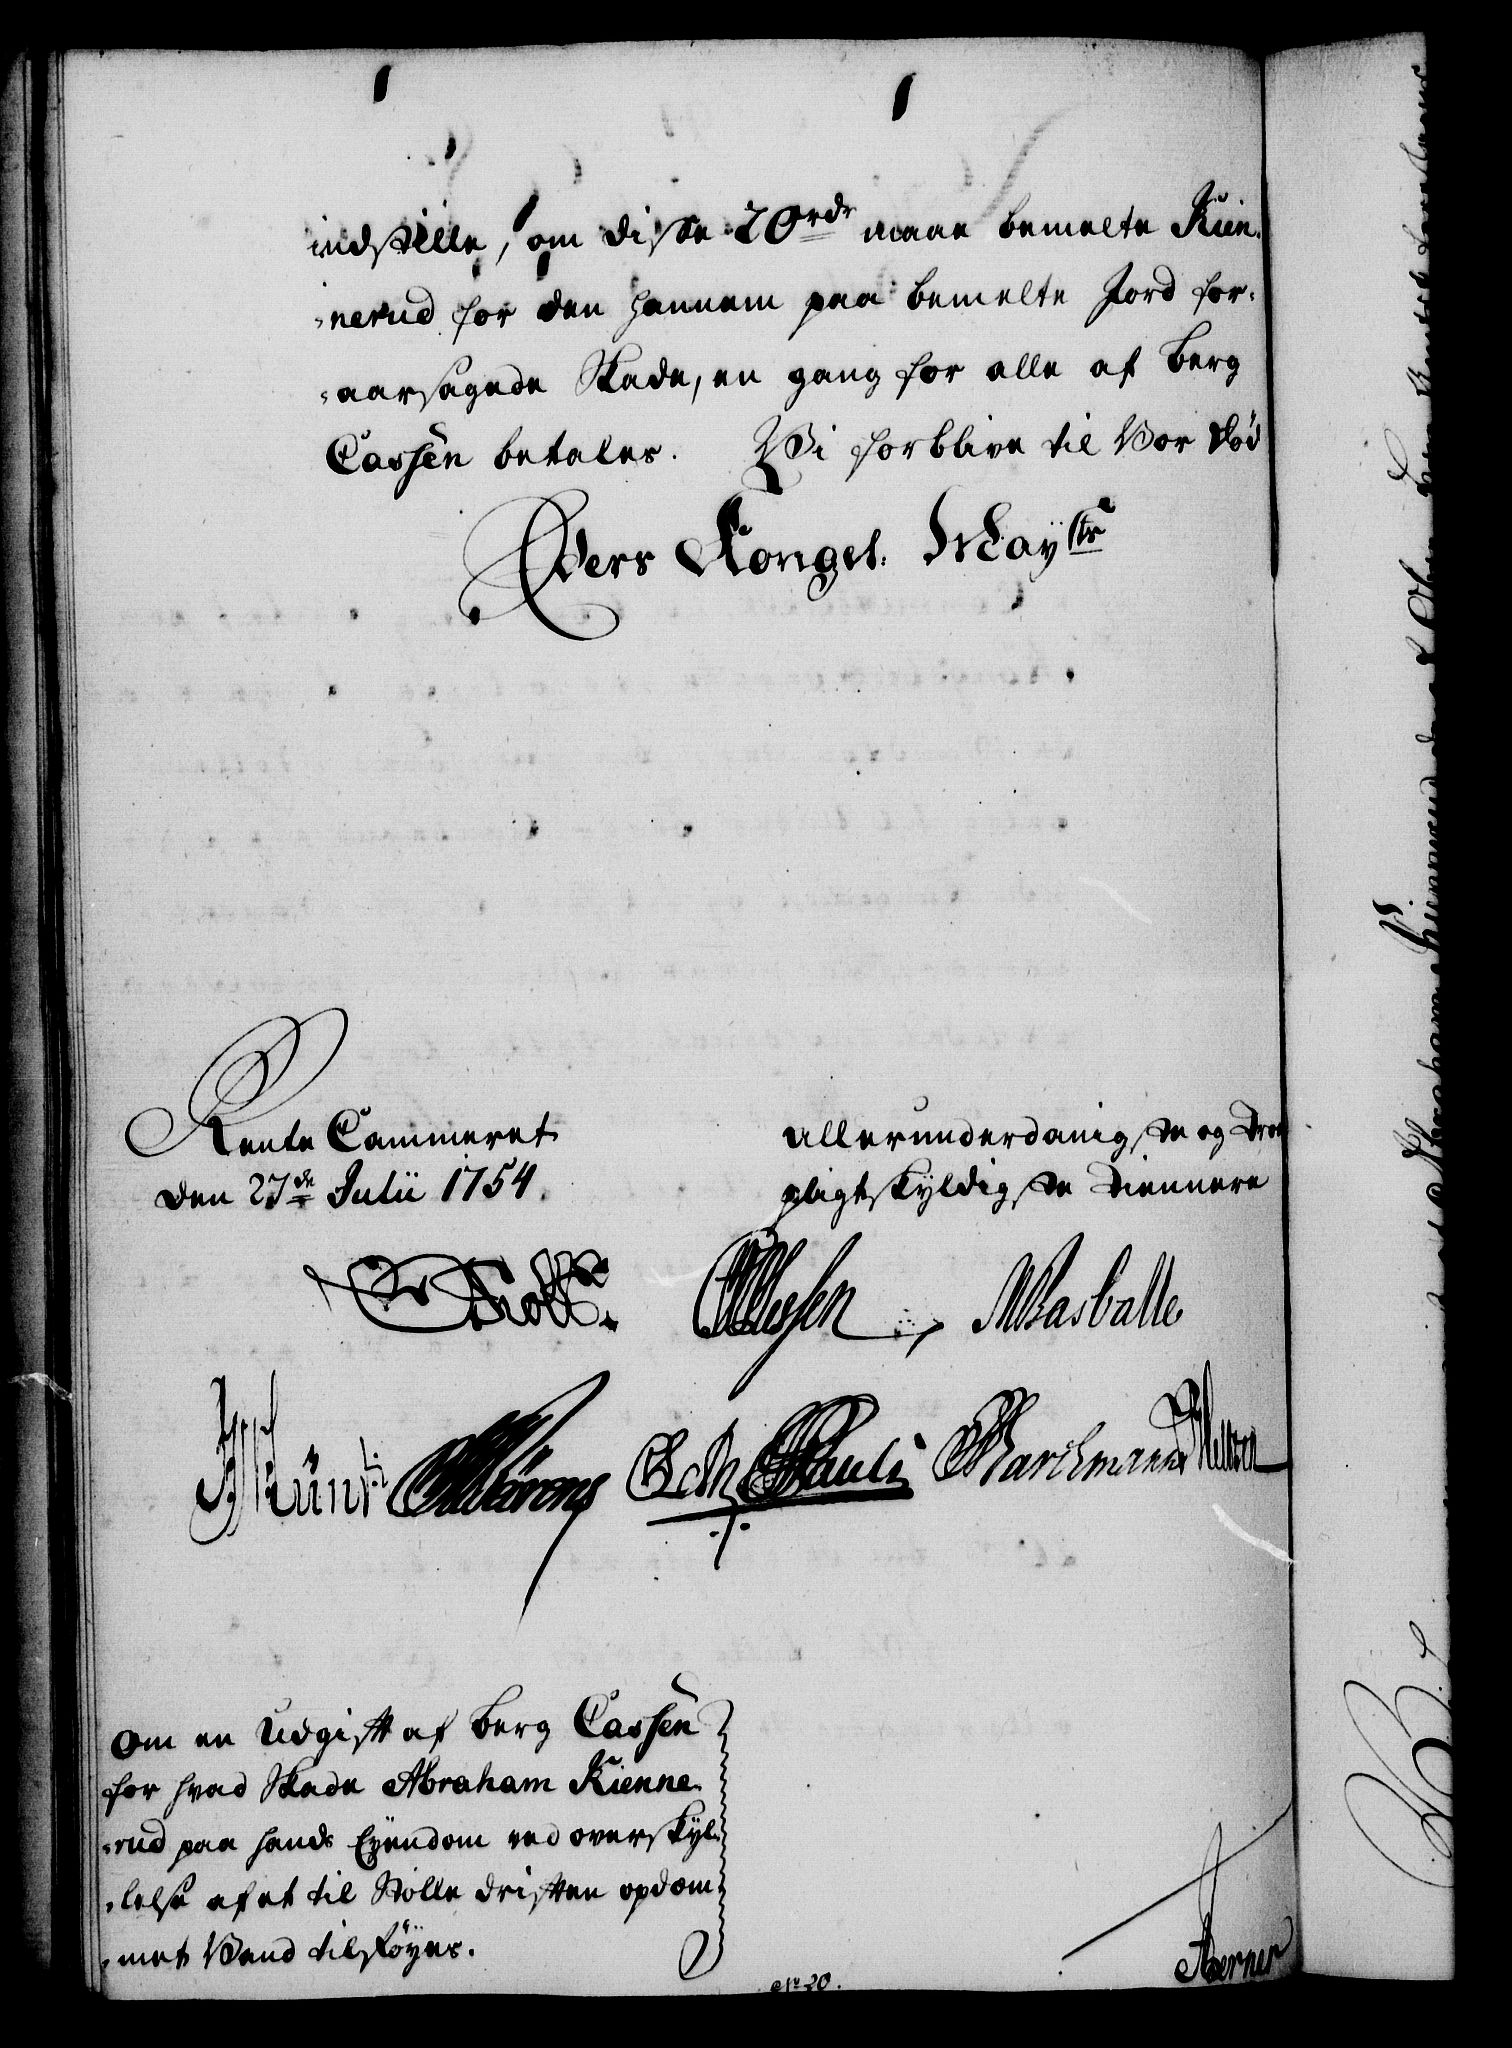 indstille, om disse 20 rdr maae bemelte Kien-
-nerud for den hannem paa bemelte Jord for-
-aarsagede Skade, en gang for alle af Berg
Cassen betales. Vi forblive til Vor død
Eders Kongel. Mayts
Rente Cammeret
den 27de Julii 1754.
allerunderdanigste og Troe
pligtskyldigste Tiennere
Holst.
Wessen
MBasballe
Pauli
Barchmann
Om en Udgift af Berg Cassen
for hvad Skade Abraham Kienne-
-rud paa hands Eyendom ved overskyl-
-lelse af et til Stolle driften opdæm-
-met Vand tilføyes.
No 20.
Berner